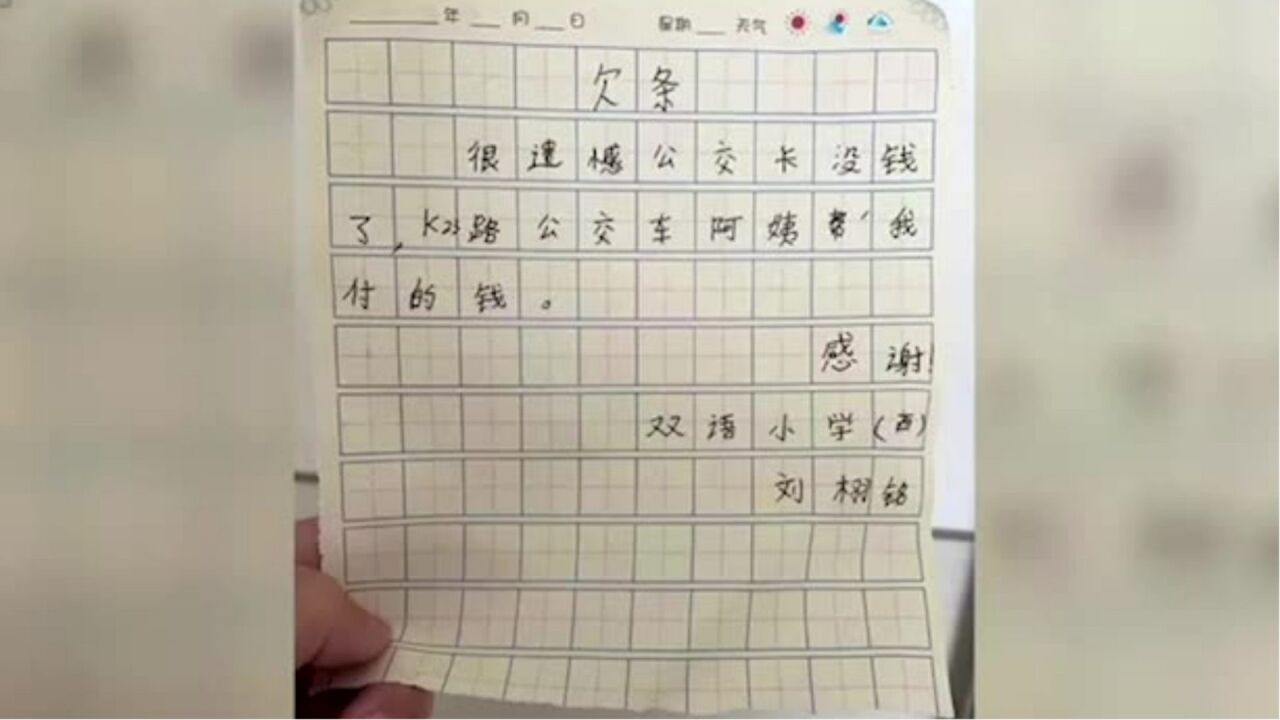 年 月 日 星期 天气
欠条
很遗憾公交卡没钱
了,K23路公交车阿姨帮我
付的钱。
感谢!
双语小学(西)
刘栩铭